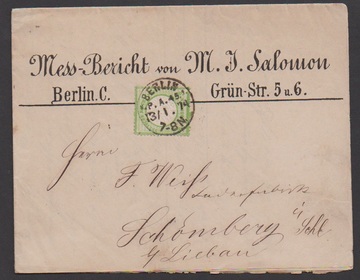 Mess-Bericht von M. J. Salomon
Berlin.C. Grün-Str. 5 u. 6.
BERLIN
P.A. 19
3/1.
7-8N.
Herrn
F. Weiß
Lederfabrik
Schömberg i/ Schl
b/ Liebau